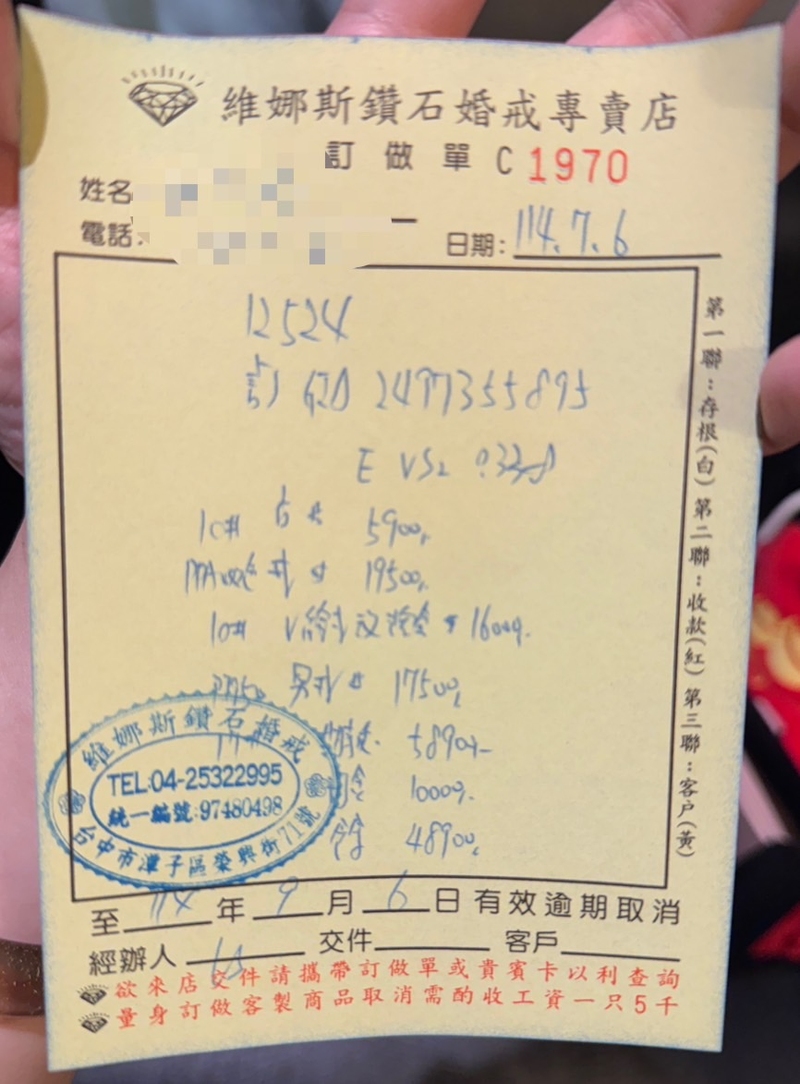 維娜斯鑽石婚戒專賣店
訂做單 C 1970
姓名
電話:
日期: 114.7.6
12524
訂 GIA 2497355895
E VS2
10# 5900
19500
10# 16000
男戒 17500
58900
10000
餘 48900
維娜斯鑽石婚戒
TEL:04-25322995
統一編號:97480498
台中市潭子區榮興街71號
至 114 年 9 月 6 日有效逾期取消
經辦人 交件 客戶
欲來店交件請攜帶訂做單或貴賓卡以利查詢
量身訂做客製商品取消需酌收工資一只5千
第一聯:存根(白) 第二聯:收款(紅) 第三聯:客戶(黃)